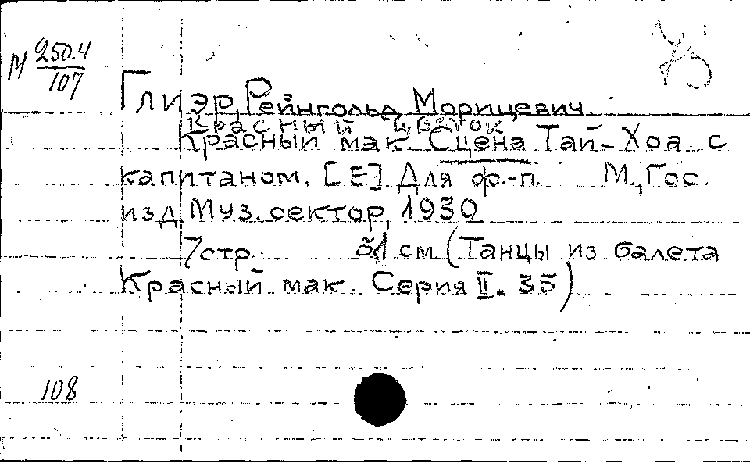 М 250.4
107
Глиэр, Рейнгольд Морицевич
Красный цветок
Красный мак. Сцена Тай-Хоа с
капитаном. [E] Для ф.-п. М., Гос.
изд. Муз. сектор, 1930
7 стр. 31 см (Танцы из балета
Красный мак. Серия II. 35)
108